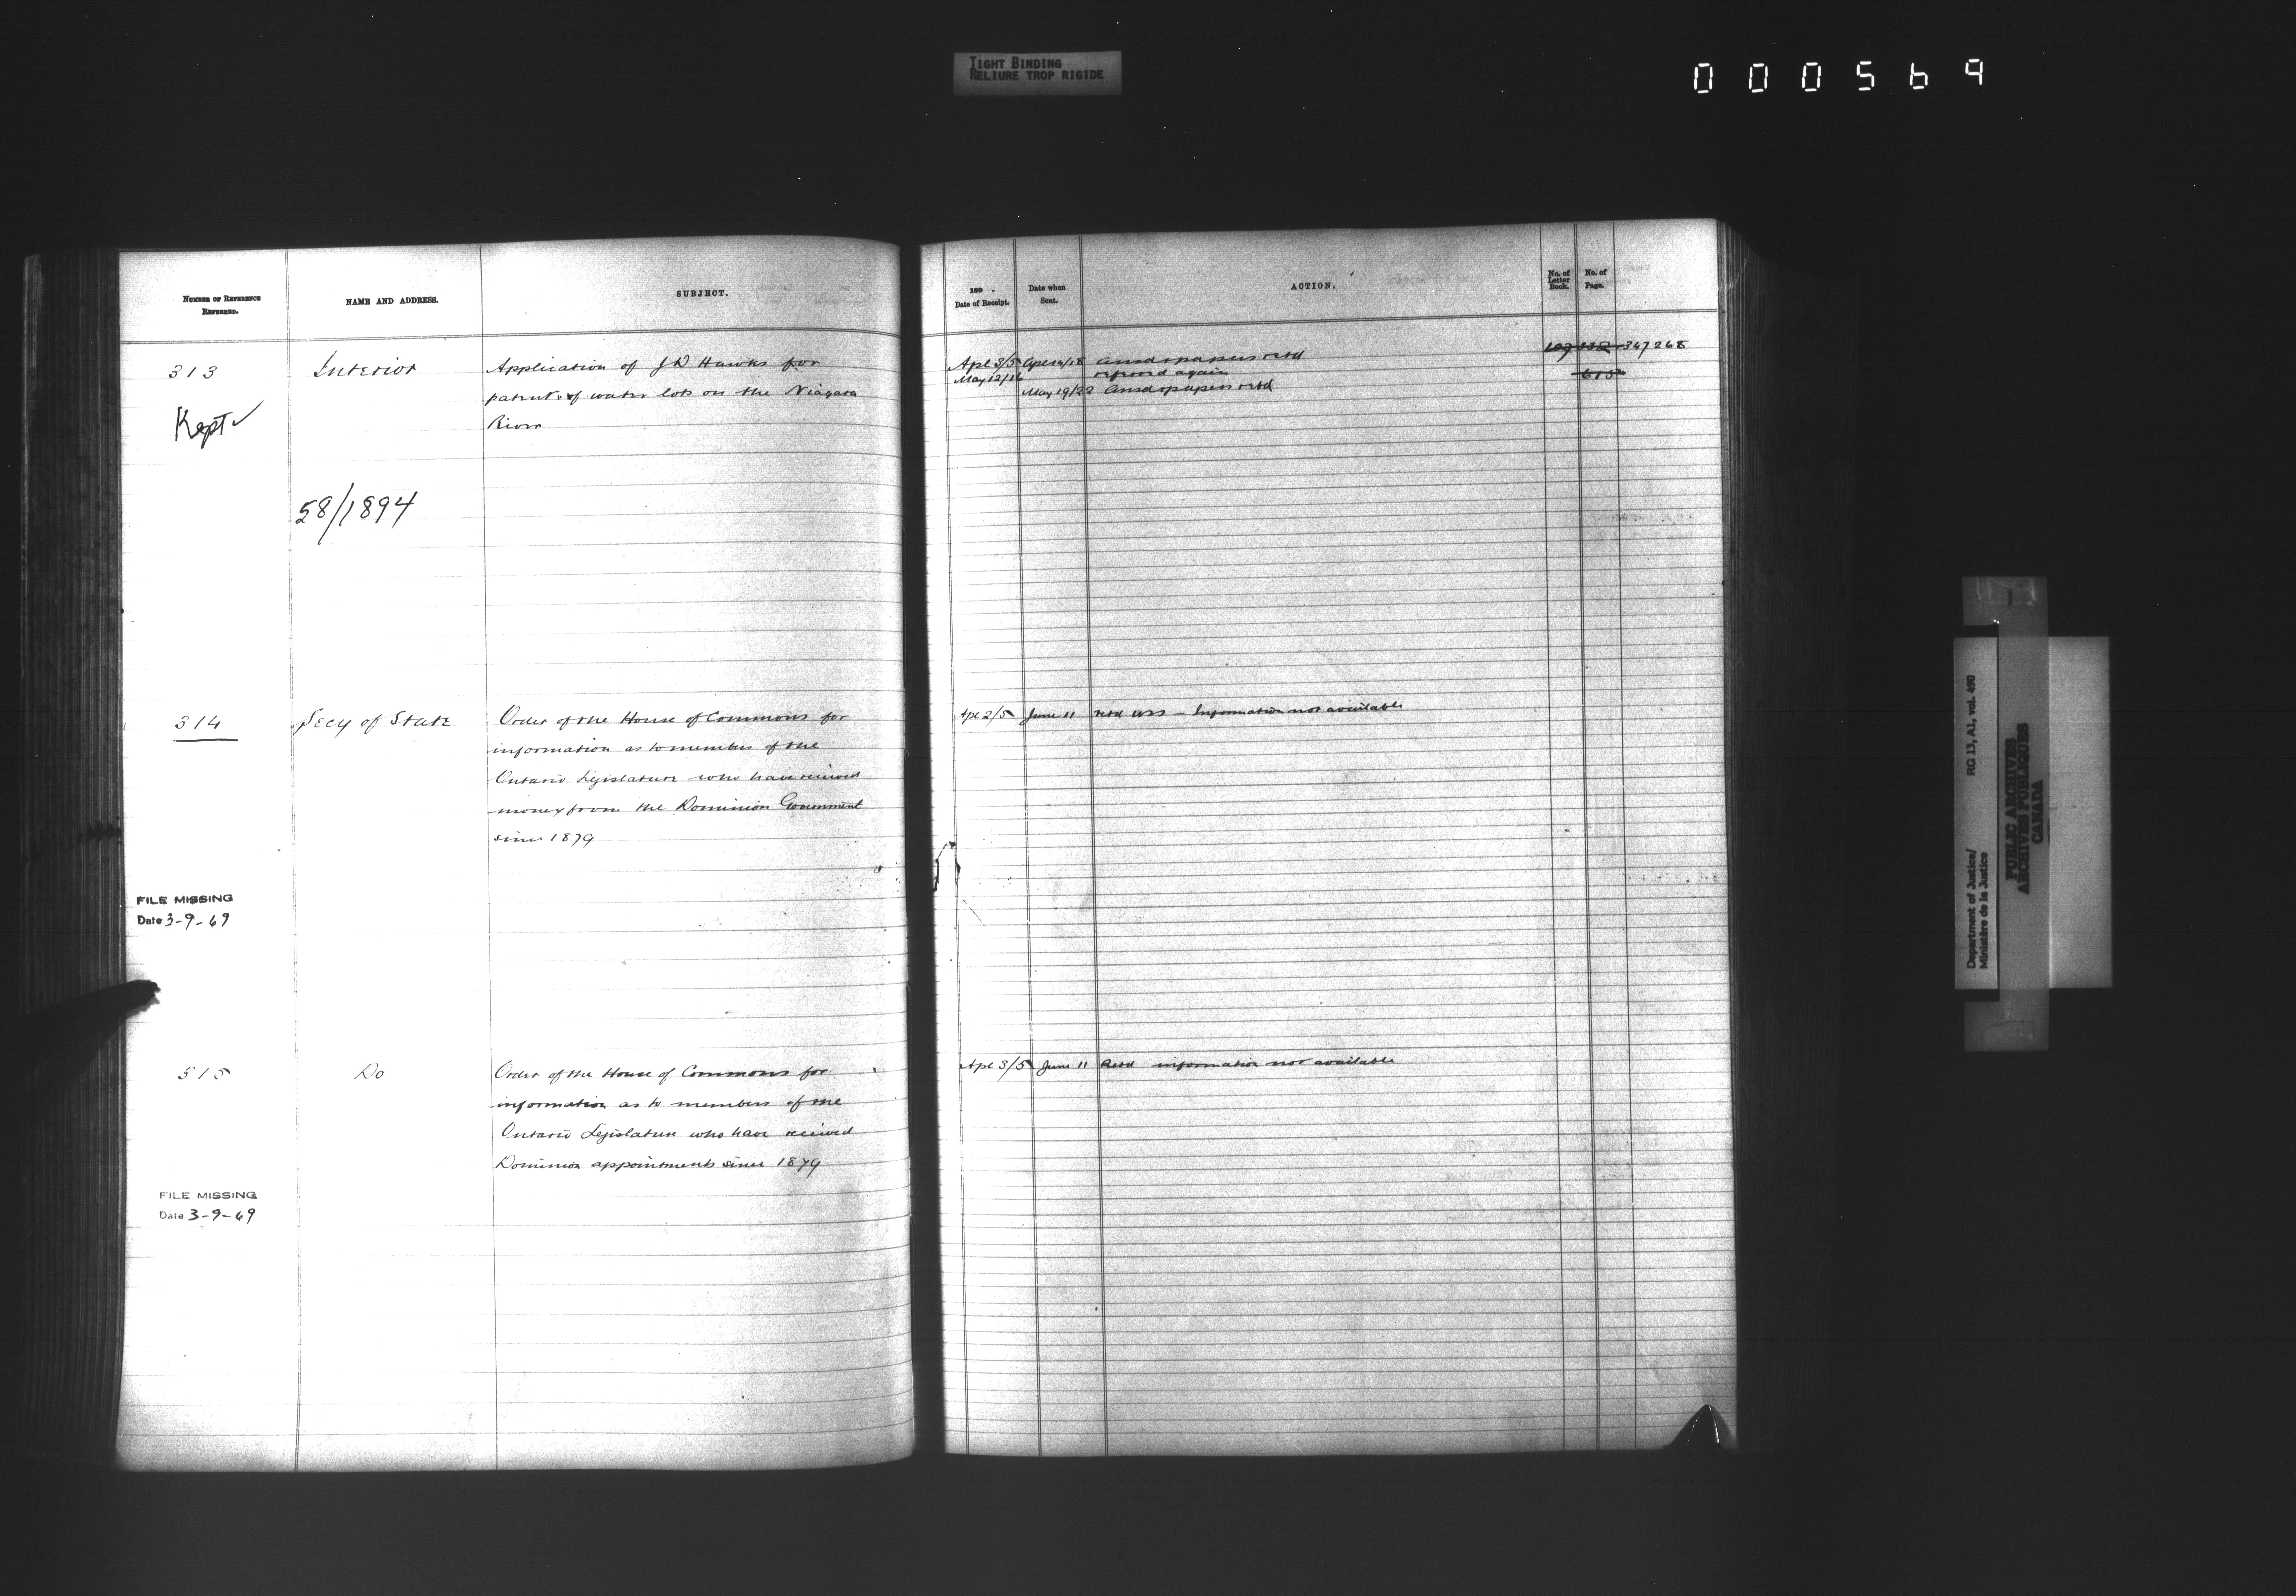 TIGHT BINDING
RELIURE TROP RIGIDE
000569
NUMBER OF REFERENCE
REFERRED.
NAME AND ADDRESS.
SUBJECT.
313
Interior
Application of J D Hawks for
patent of water lots on the Niagara
River
Kept ✓
58/1894
314
Secy of State
Order of the House of Commons for
information as to members of the
Ontario Legislature who have received
money from the Dominion Government
since 1879
FILE MISSING
Date 3-9-69
315
Do
Order of the House of Commons for
information as to members of the
Ontario Legislature who have received
Dominion appointments since 1879
FILE MISSING
Date 3-9-69
189 .
Date of Receipt.
Date when
Sent.
ACTION.
No. of
Letter
Book.
No. of
Page.
Apl 3/5 Apl 14/18 Ansd & papers retd 347 268
May 12/16 referred again 615
May 19/22 Ansd & papers retd
Apl 2/5 June 11 retd - Information not available
Apl 3/5 June 11 Retd information not available
Department of Justice/
Ministère de la Justice
RG 13, A1, vol. 490
PUBLIC ARCHIVES
ARCHIVES PUBLIQUES
CANADA